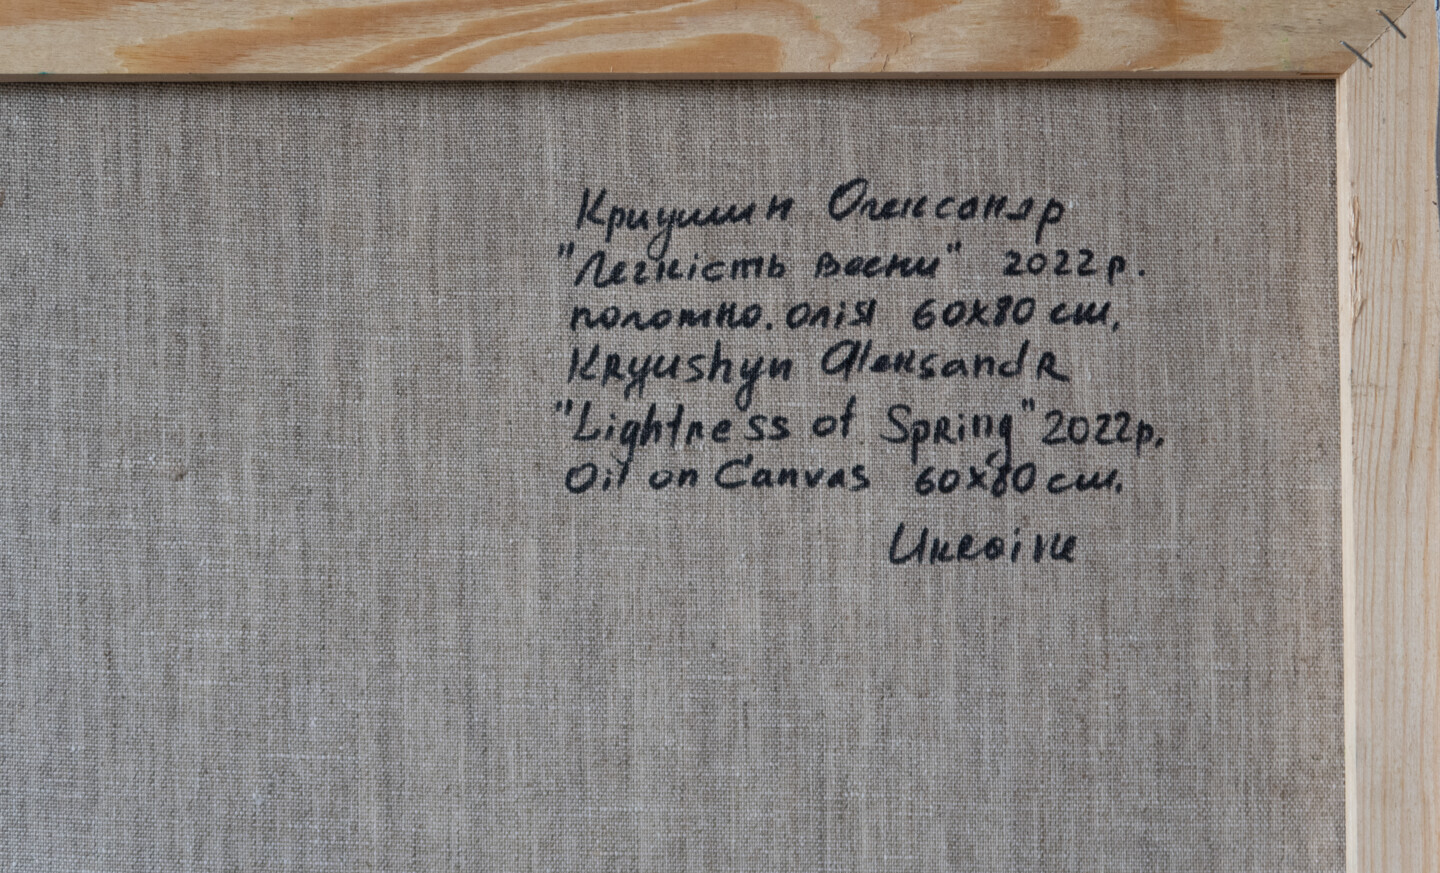 Криушин Олександр
"Легкість весни" 2022р.
полотно. олія 60х80 см.
Kryushyn Oleksandr
"Lightness of Spring" 2022р.
Oil on Canvas 60x80 см.
Ukraine